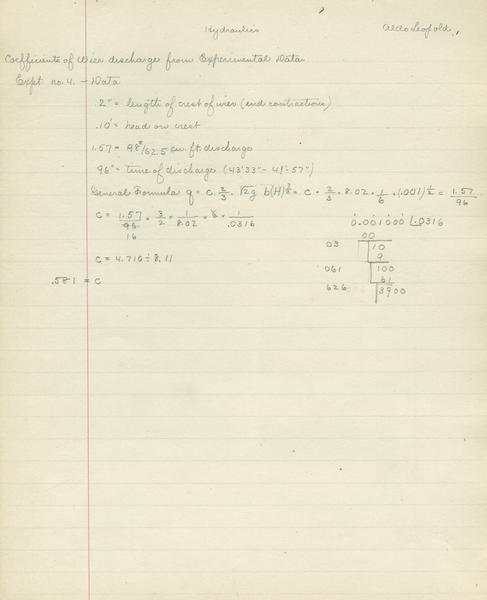 Hydraulics Aldo Leopold.
Coefficients of Weir discharge from Experimental Data
Expt no. 4. — Data
2" = length of crest of weir (end contractions)
.10' = head on crest
1.57 = 98#/62.5 cu. ft. discharge
96" = time of discharge (43'33" - 41'-57")
General Formula q = c. 2/3. √2g b(H)^3/2 = c × 2/3 × 8.02 × 1/6 × (.001)^1/2 = 1.57/96
c = 1.57/96 × 3/2 × 1/8.02 × 6 × 1/.0316
16
0.001000 |.0316
00
03 10
9
c = 4.710 ÷ 8.11
061 100
61
.581 = c
626 3900